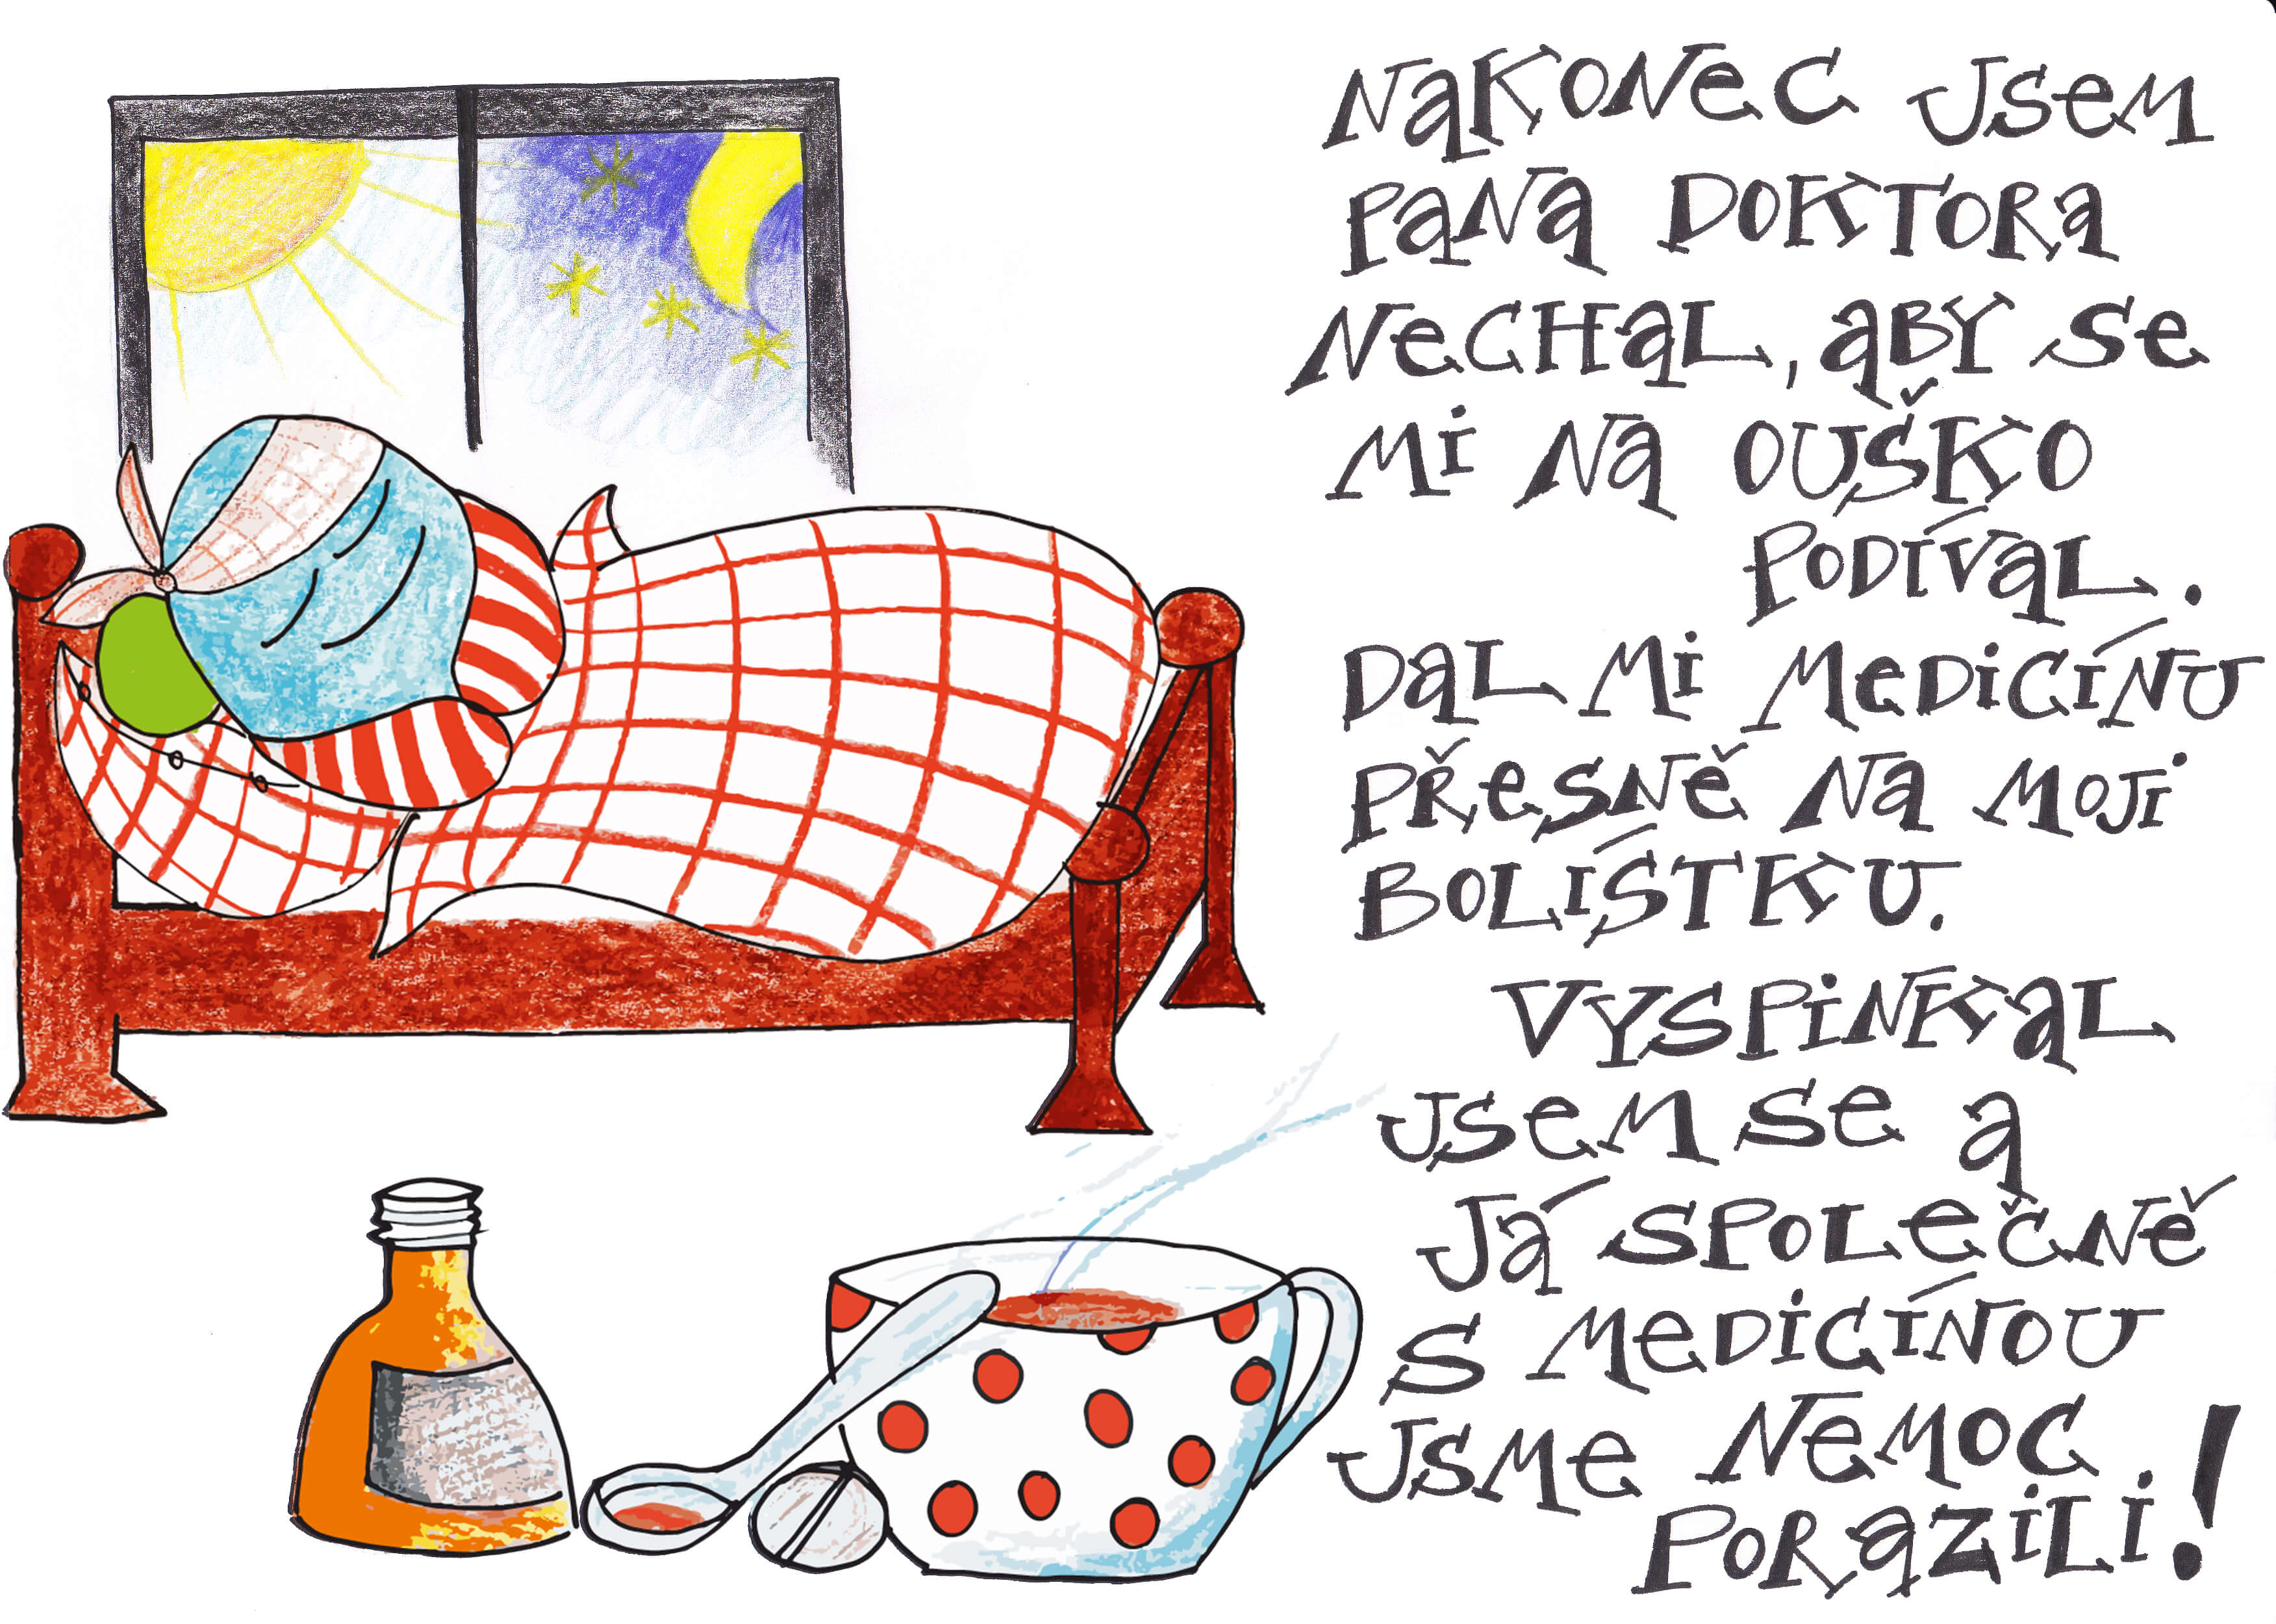 NAKONEC JSEM
PANA DOKTORA
NECHAL, ABY SE
MI NA OUŠKO
PODÍVAL.
DAL MI MEDICÍNU
PŘESNĚ NA MOJI
BOLÍSTKU.
VYSPINKAL
JSEM SE A
JÁ SPOLEČNĚ
S MEDICÍNOU
JSME NEMOC
PORAZILI!